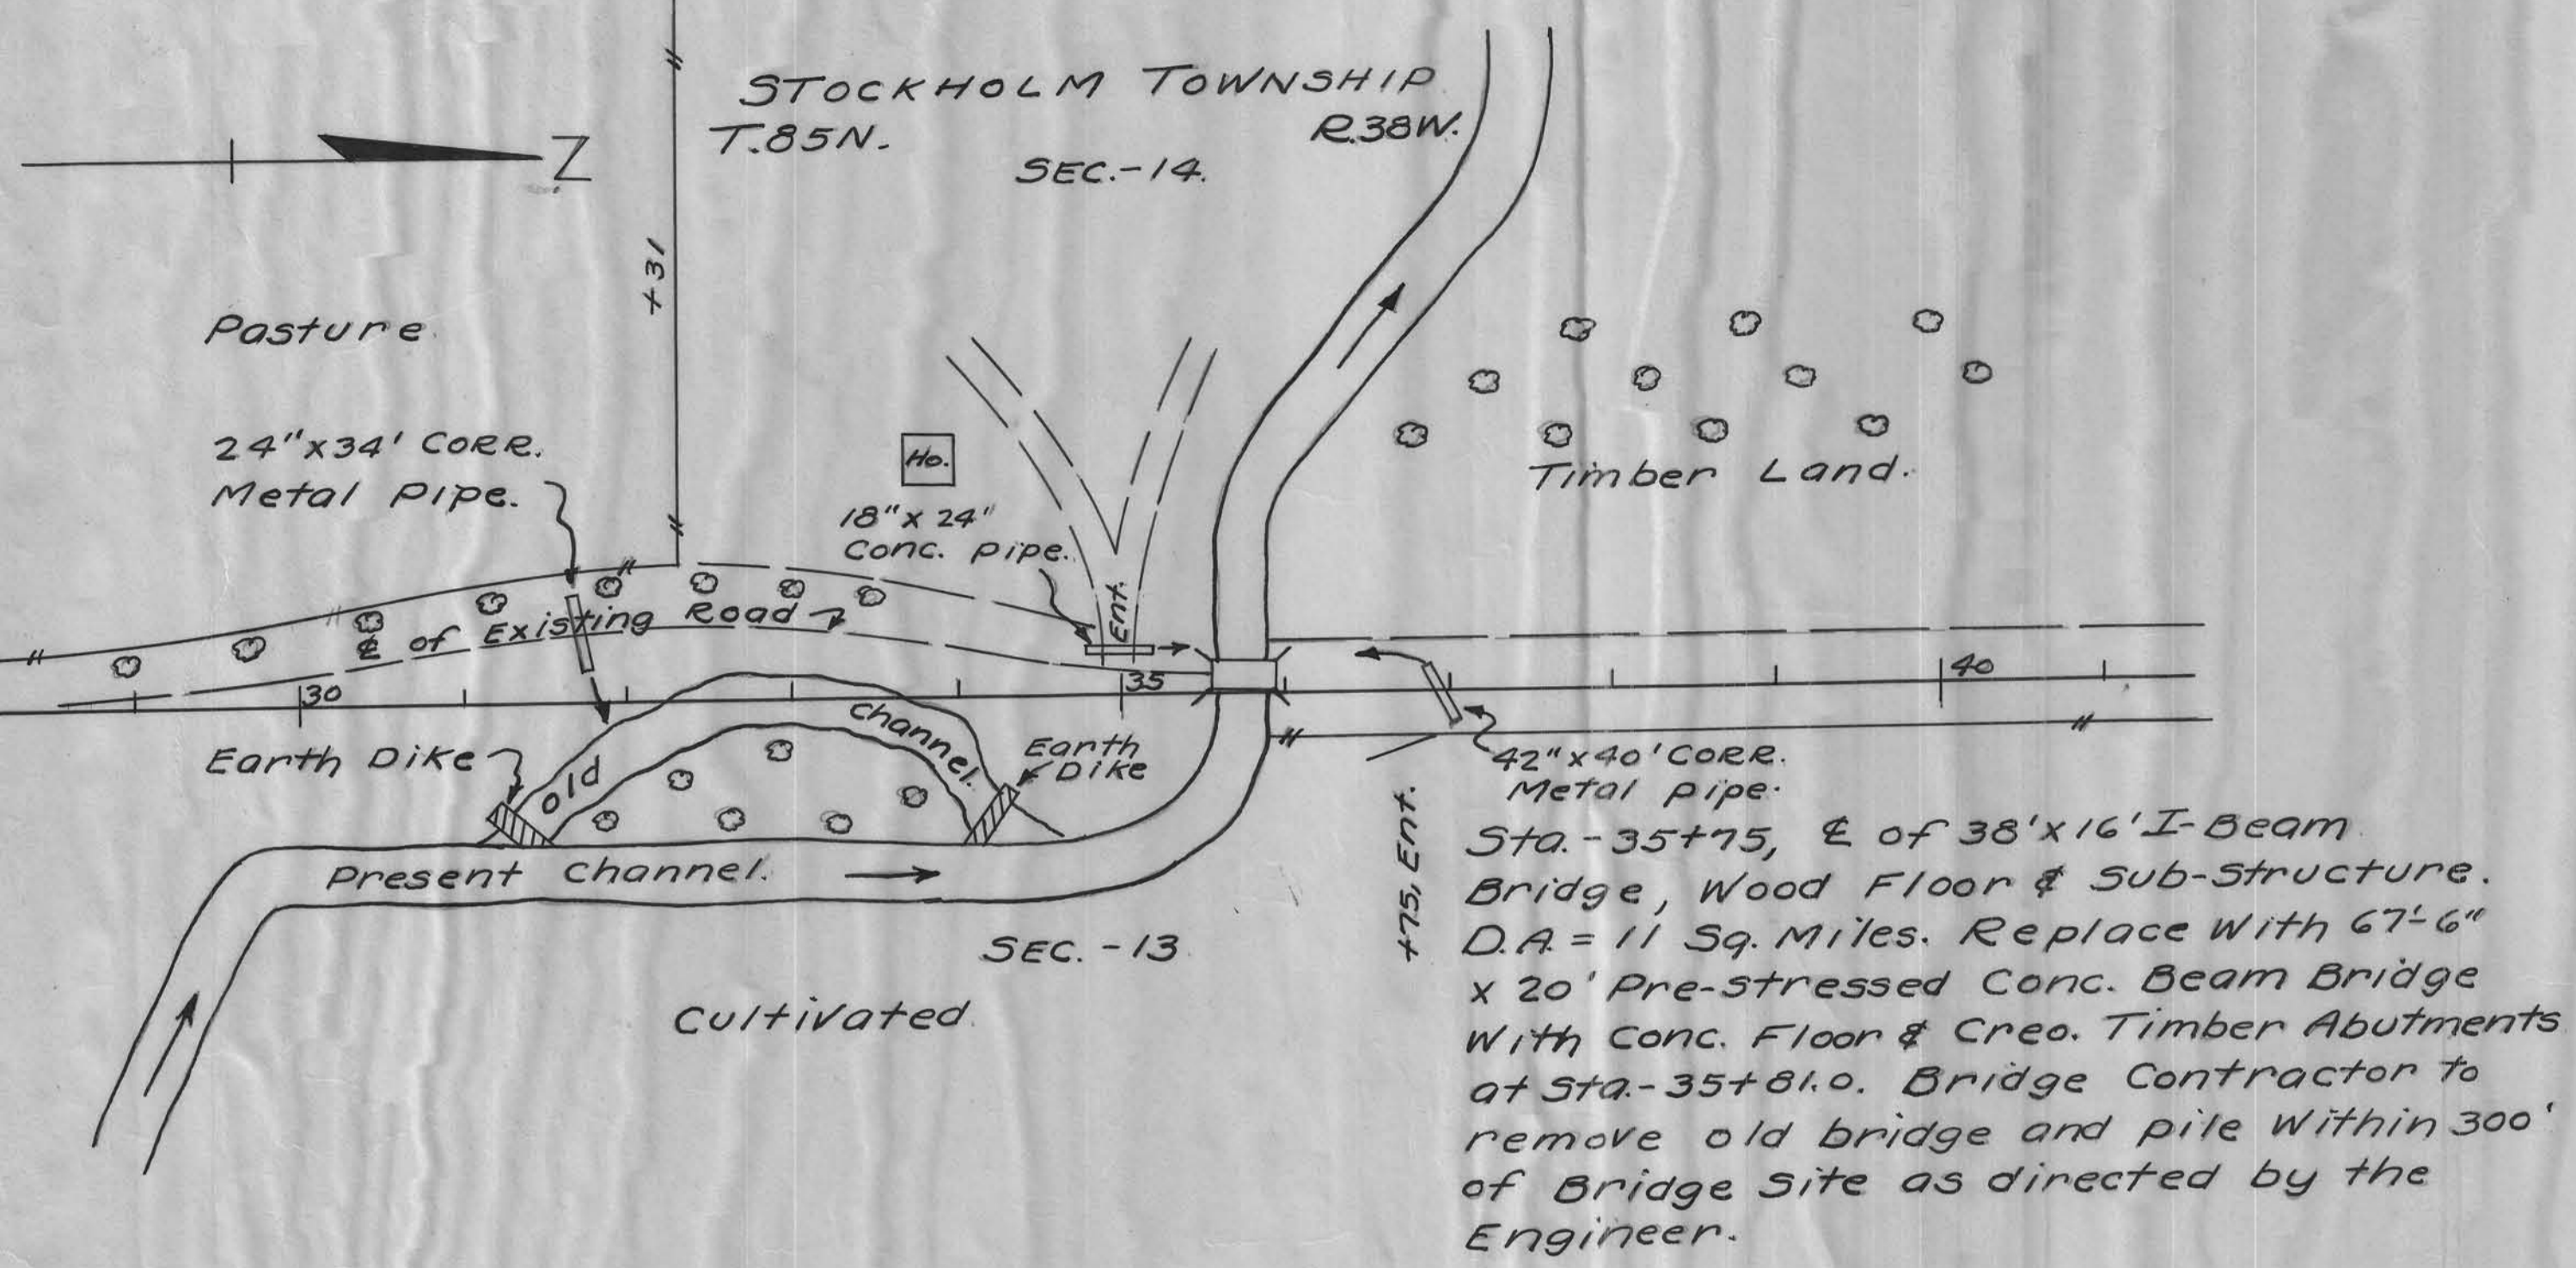 STOCKHOLM TOWNSHIP
T.85N. R.38W.
SEC.-14.
Z
+31
Pasture
24"x34' CORR.
Metal Pipe.
Ho.
18"x 24"
Conc. Pipe.
Ent.
Timber Land.
℄ of Existing Road
30
35
40
Old Channel.
Earth Dike
Earth
Dike
42"x40' CORR.
Metal Pipe.
Present Channel.
SEC.-13
Cultivated
+75, Ent.
Sta.-35+75, ℄ of 38'x16' I-Beam
Bridge, Wood Floor & Sub-Structure.
D.A. = 11 Sq. Miles. Replace With 67'-6"
x 20' Pre-stressed Conc. Beam Bridge
With Conc. Floor & Creo. Timber Abutments
at Sta.-35+81.0. Bridge Contractor to
remove old bridge and pile Within 300'
of Bridge Site as directed by the
Engineer.